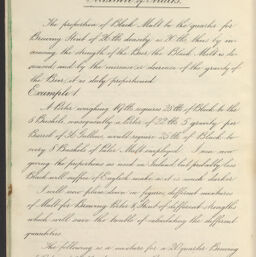 The proportion of Black Malt to the quarter for
Brewing Stout of 26 lb density is 16 lb thus by in
creasing the strength of the Beer the Black Malt is de
creased, and by the increase or decrease of the gravity of
the Beer, it is duly proportioned.
Example 1
A Porter weighing 19 lb requires 25 lb of Black to the
Bushels, consequently a Porter of 22 lb gravity per
Barrel of 36 Gallons, would require 25 lb of Black to
every 8 Bushels of Pale Malt employed. I am now
giving the proportions as used in Ireland but probably less
Black will suffice if English make as is much darker
I will now place down in figures different mixtures
of Malt for Brewing Porter & Stout of different strengths
which will save the trouble of calculating the different
quantities.
The following is a mixture for a 20 quarter Brewing